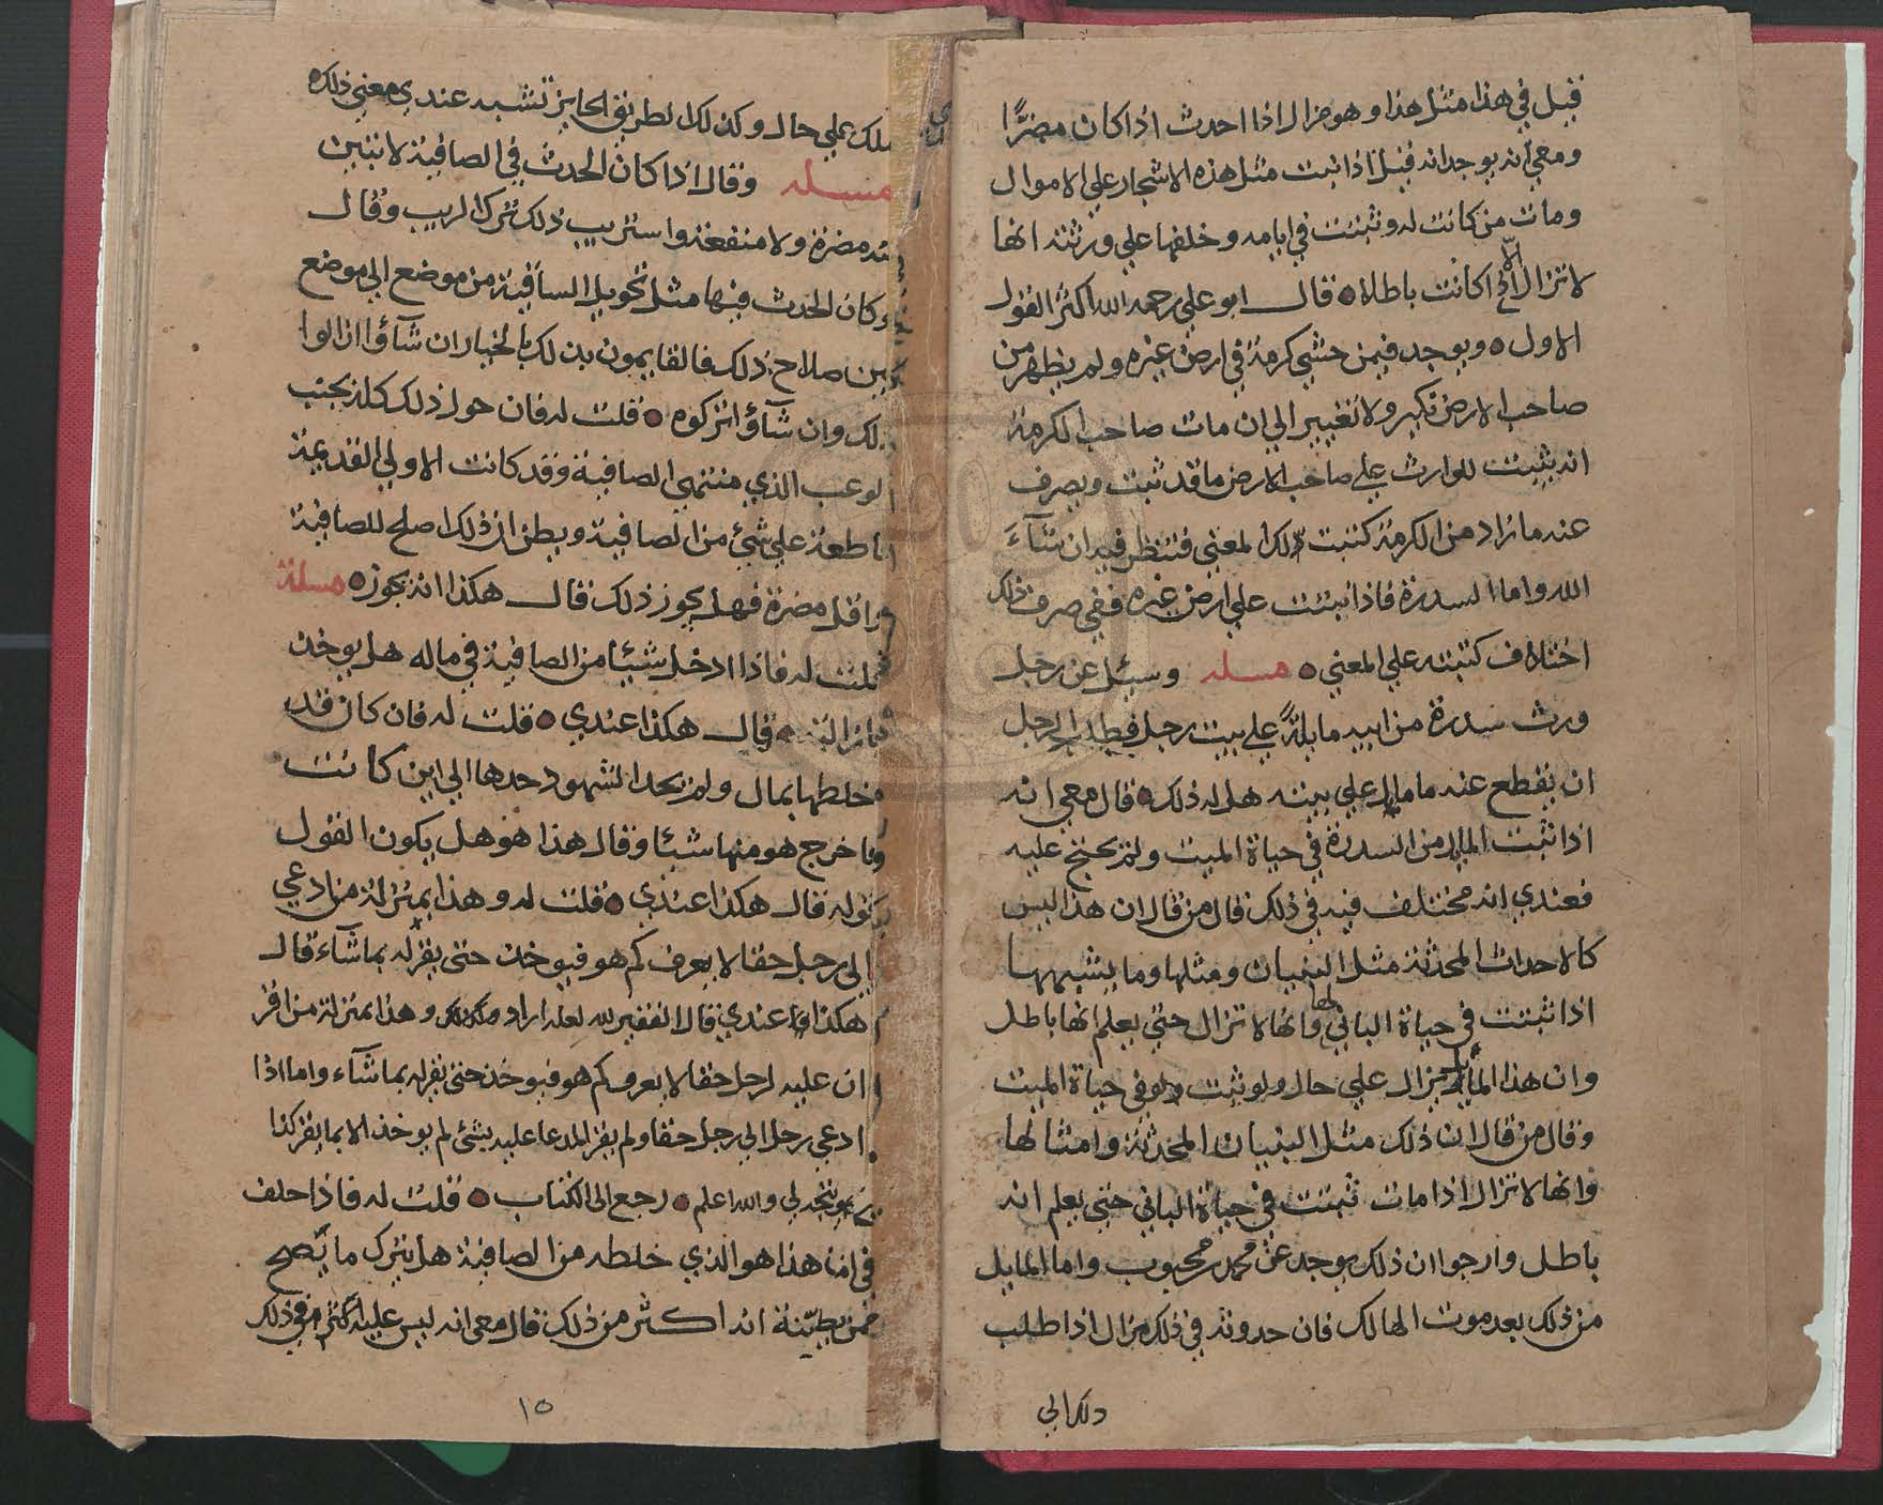 قيل في هذا مثل هذا وهو مزال اذا احدث اذا كان مضرًّا
ومعي انه يوجد انه قيل اذا نبت مثل هذه الاشجار على الاموال
ومات من كانت له وثبتت في ايامه وخلفها علي ورثته انها
لا تزال الا اذا كانت باطلا ٥ قال ابو علي رحمه الله اكثر القول
الاول ٥ ويوجد فيمن حشي كرمة في ارض غيره ولم يظهر من
صاحب الارض نكير ولا تغيير الي ان مات صاحب الكرمة
انه يثبت للوارث علي صاحب الارض ما قد ثبت ويصرف
عنه ما زاد من الكرمة كتبت ذلك المعني فتنظر فيه ان شآء
الله واما السدرة فاذا نبتت علي ارض غيره ففي صرف ذلك
اختلاف كتبته علي المعني ٥ مسله وسئل عن رجل
ورث سدرة من ابيه مايلةً علي بيت رجل فيطلب الرجل
ان يقطع عنه ما مال علي بيته هل له ذلك ٥ قال معي انه
اذا ثبت المايل من السدرة في حياة الميت ولم يحتج عليه
فعندي انه مختلف فيه في ذلك قال من قال ان هذا ليس
كالاحداث المحدثة مثل البنيان ومثلها وما يشبهها
اذا ثبتت في حياة الباني لها وانها لا تزال حتي يعلم انها باطل
وان هذا المايل يزال علي حال ولو ثبت ولو في حياة الميت
وقال من قال ان ذلك مثل البنيان المحدثة وامثالها
وانها لا تزال اذا مات ثبتت في حياة الباني حتي يعلم انه
باطل وارجوا ان ذلك يوجد عن محمد بن محبوب واما المايل
من ذلك بعد موت الهالك فان حدوثه في ذلك مزال اذا طلب
ذلك الي
ذلك علي حال وكذلك الطريق الجايز تشبه عندي معني ذلك ٥
مسله وقال اذا كان الحدث في الصافية لا تبين
فيه مضرة ولا منفعة واستريب ذلك ترك الريب وقال
وكان الحدث فيها مثل تحويل الساقية من موضع الي موضع
صلاح ذلك فالقايمون بذلك بالخيار ان شآؤا ازالوا
ذلك وان شآؤ اتركوه ٥ قلت له فان حول ذلك كله بجنب
الوعب الذي منتهي الصافية وقد كانت الاولي القديمة
قاطعة علي شئ من الصافية ويظن ان ذلك اصلح للصافية
واقل مضرة فهل يجوز ذلك قال هكذا انه يجوز ٥ مسلة
قلت له فاذا ادخل شيئا من الصافية في ماله هل يوخذ
قال هكذا عندي ٥ قلت له فان كان قد
خلطها بمال ولم يحد الشهود حدها الي اين كانت
وما خرج هو منها شيئا وقال هذا هو هل يكون القول
قوله قال هكذا عندي ٥ قلت له وهذا بمنزلة من ادعي
الي رجل حقا لا يعرف كم هو فيوخذ حتي يقر له بما شاء قال
هكذا عندي قال الفقير لله لعله اراد وهذا بمنزلة من اقر
ان عليه لرجل حقا لا يعرف كم هو فيوخذ حتي يقر له بما شآء واما اذا
ادعي رجل الي رجل حقا ولم يقر المدعا عليه بشئ لم يوخذ الا بما يقر كذا
يتجه لي والله اعلم ٥ رجع الى الكتاب ٥ قلت له فاذا حلف
في ان هذا هو الذي خلطه من الصافية هل يترك ما يصح
بينة انه اكثر من ذلك قال معي انه ليس عليه اكثر من ذلك
١٥